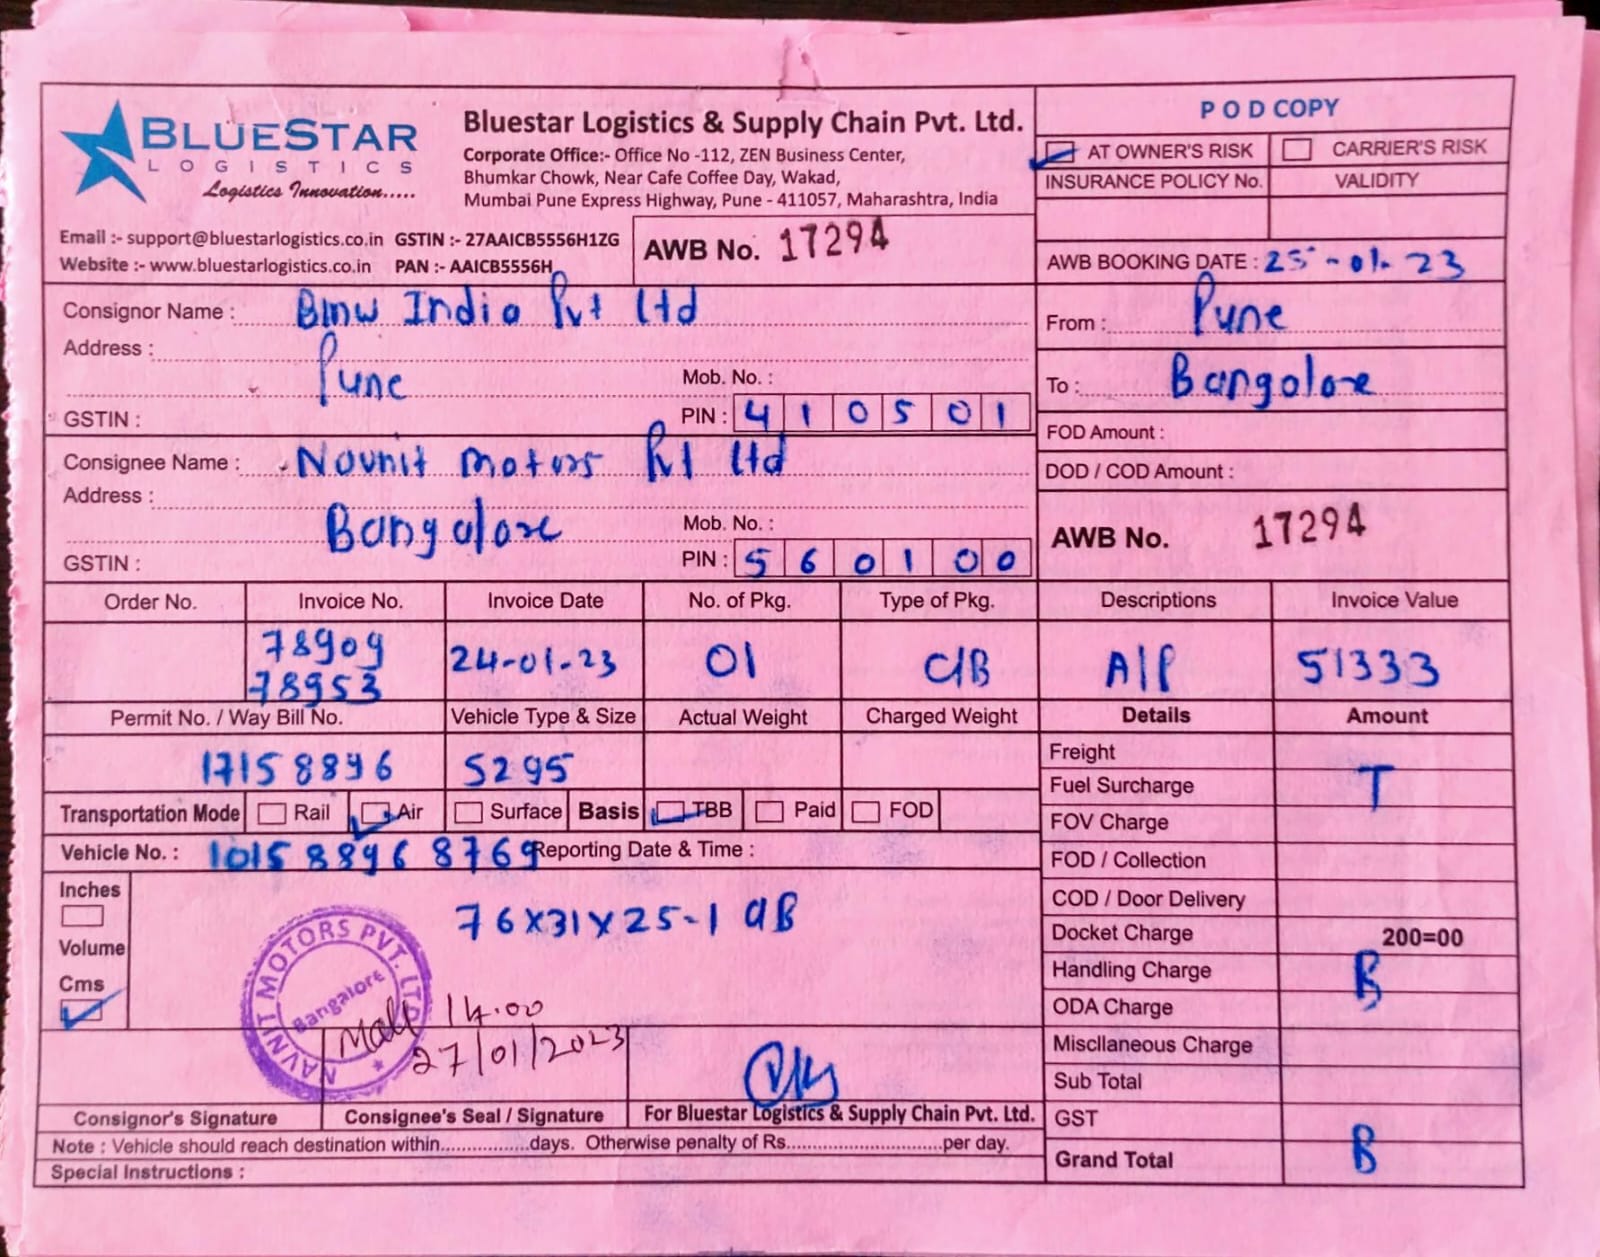 BLUESTAR
LOGISTICS
Logistics Innovation.....
Bluestar Logistics & Supply Chain Pvt. Ltd.
Corporate Office:- Office No -112, ZEN Business Center,
Bhumkar Chowk, Near Cafe Coffee Day, Wakad,
Mumbai Pune Express Highway, Pune - 411057, Maharashtra, India
Email :- support@bluestarlogistics.co.in GSTIN :- 27AAICB5556H1ZG
Website :- www.bluestarlogistics.co.in PAN :- AAICB5556H
AWB No. 17294
POD COPY
AT OWNER'S RISK CARRIER'S RISK
INSURANCE POLICY No. VALIDITY
AWB BOOKING DATE : 25-01-23
Consignor Name : Bmw India Pvt Ltd
Address : Pune
Mob. No. :
GSTIN : PIN : 410501
From : Pune
To : Bangalore
FOD Amount :
DOD / COD Amount :
Consignee Name : Novnit motors Pvt Ltd
Address : Bangalore
Mob. No. :
GSTIN : PIN : 560100
AWB No. 17294
Order No. Invoice No. Invoice Date No. of Pkg. Type of Pkg. Descriptions Invoice Value
78909
78953 24-01-23 01 C/B A/P 51333
Permit No. / Way Bill No. Vehicle Type & Size Actual Weight Charged Weight Details Amount
17158896 5295
Transportation Mode Rail Air Surface Basis TBB Paid FOD
Vehicle No. : 10158896 8769 Reporting Date & Time :
Freight
Fuel Surcharge T
FOV Charge
FOD / Collection
COD / Door Delivery
Docket Charge 200=00
Handling Charge B
ODA Charge
Miscllaneous Charge
Sub Total
GST
Grand Total B
Inches
Volume
Cms
76X31X25-1 C/B
NAVNIT MOTORS PVT. LTD.
Bangalore
14.00
27/01/2023
Consignor's Signature Consignee's Seal / Signature For Bluestar Logistics & Supply Chain Pvt. Ltd.
Note : Vehicle should reach destination within.................days. Otherwise penalty of Rs.............................per day.
Special Instructions :